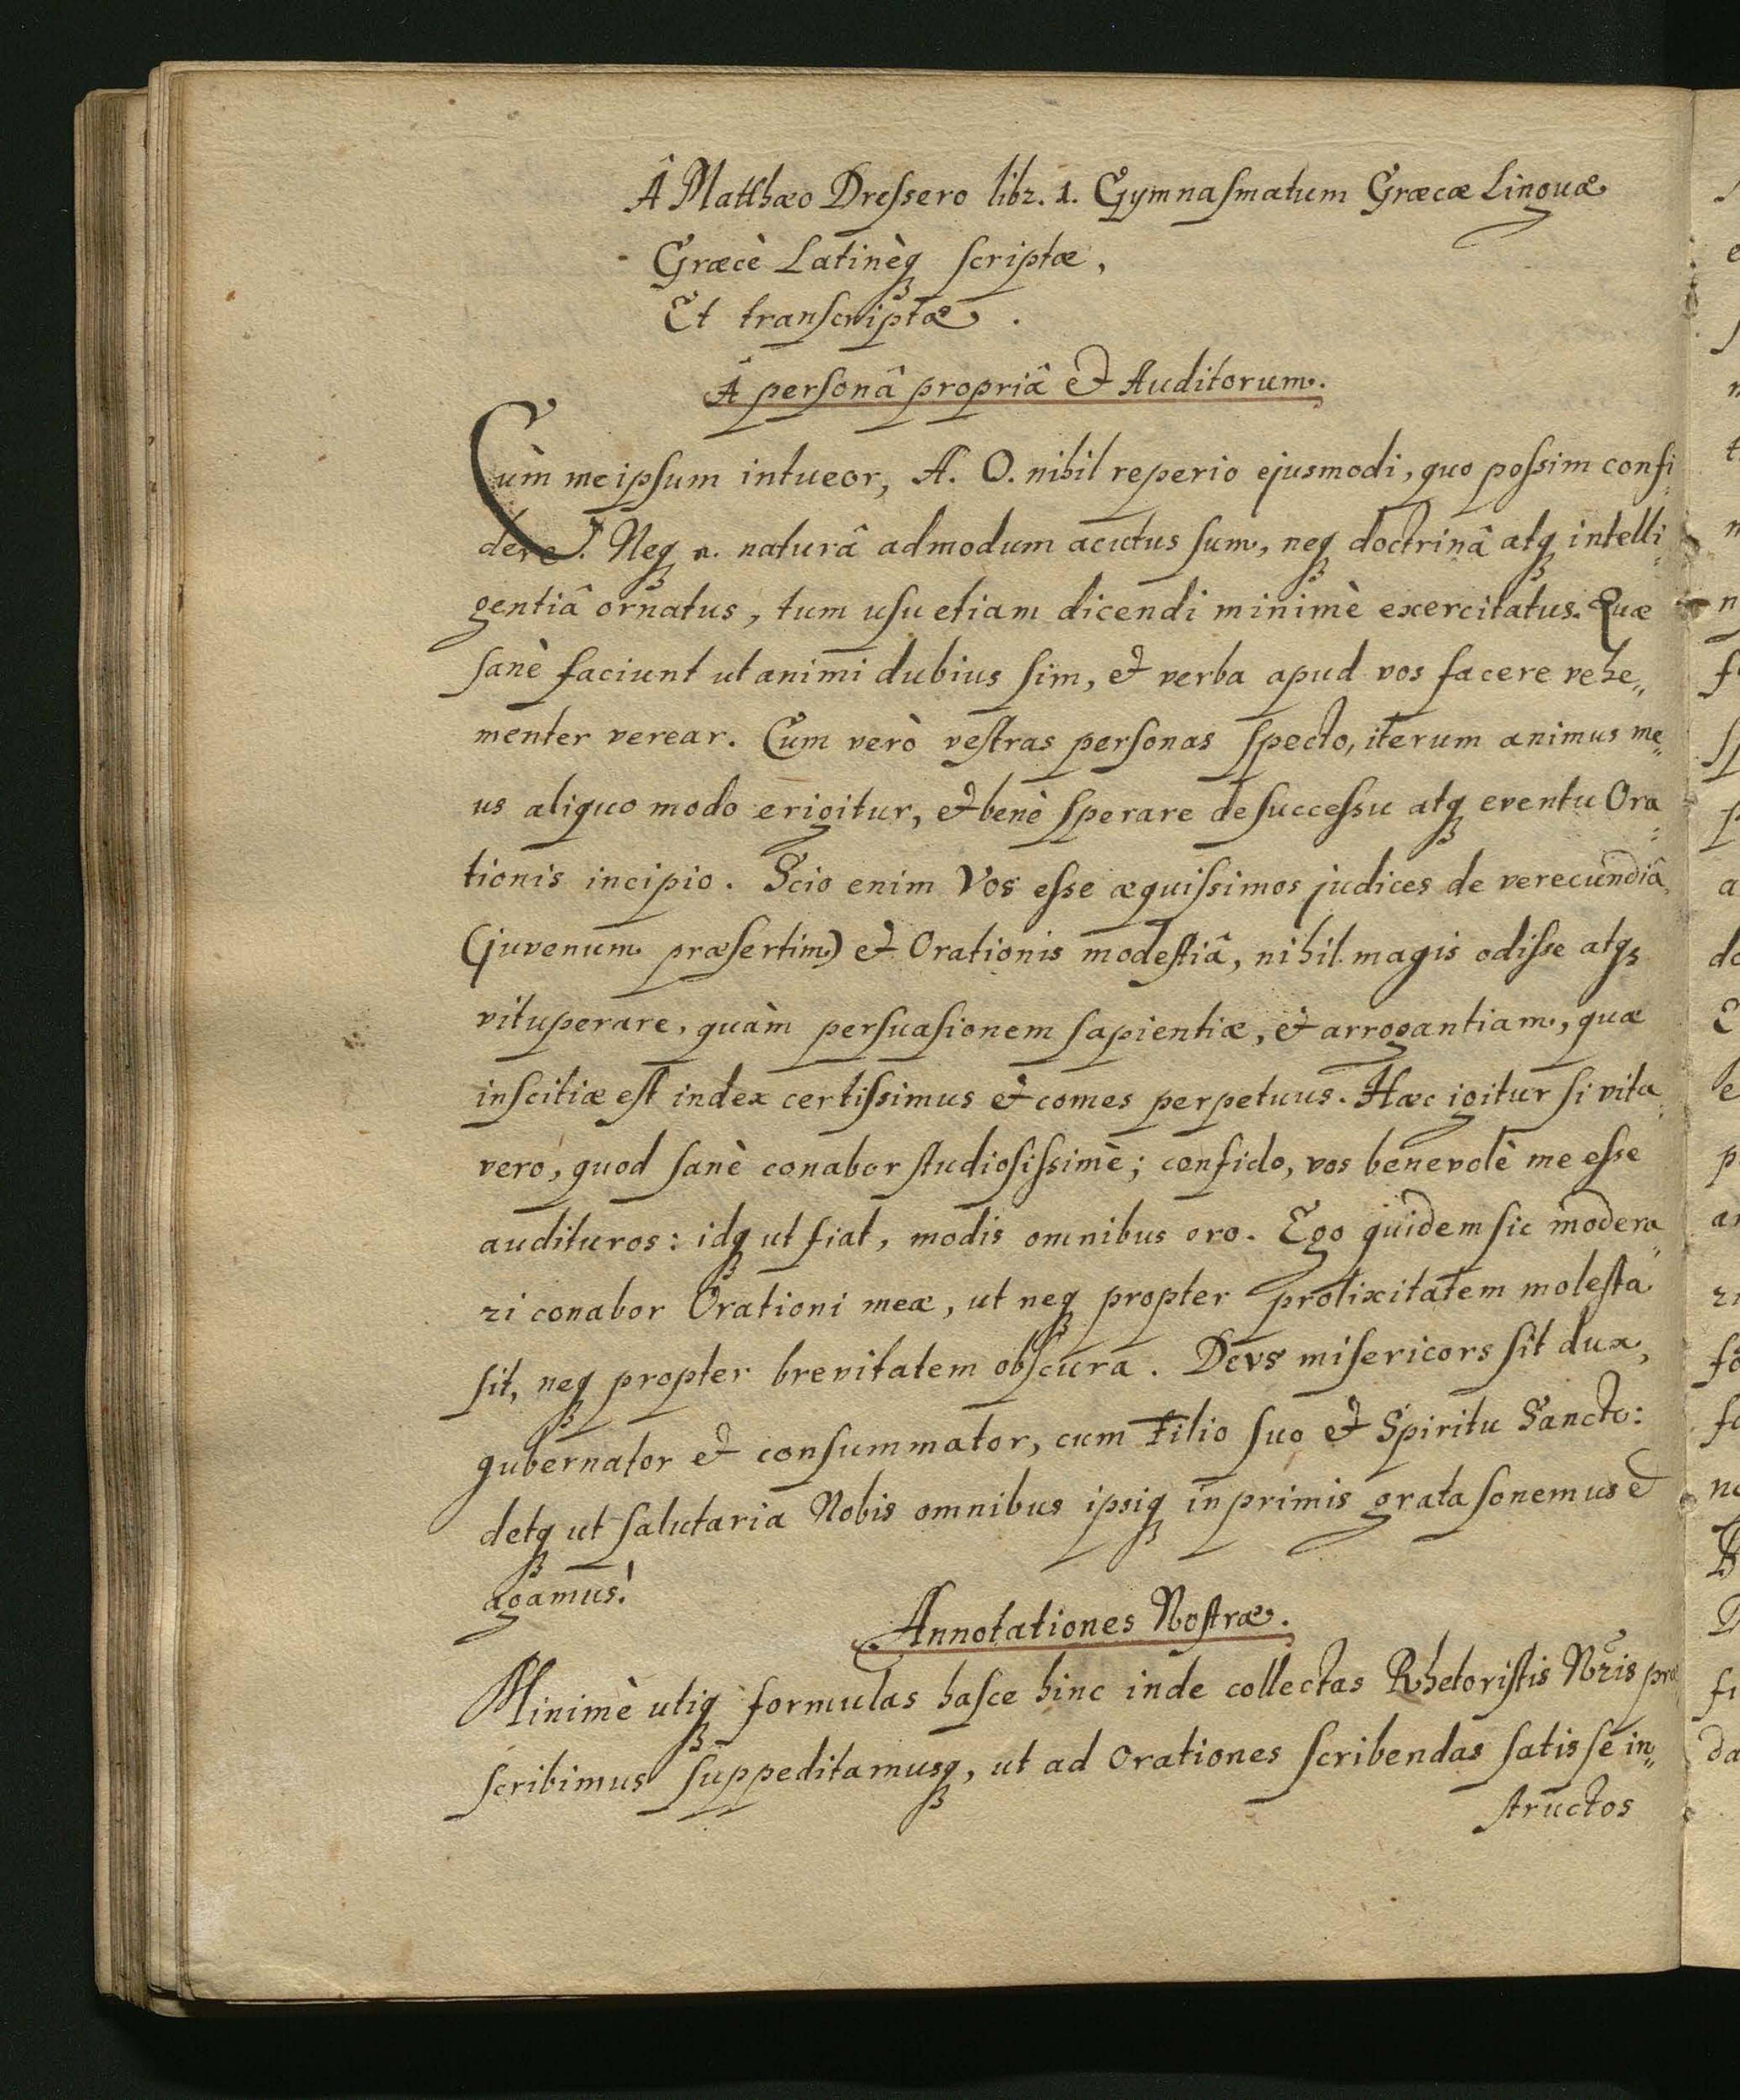 Â Matthæo Dreſsero libr. 1. Gymnaſmatum Græcæ Linguæ
Græcè Latinèq́ʒ ſcriptæ,
Et tranſcriptæ.
Â perſonâ propriâ et Auditorum.
Cùm meipſum intueor, A. O. nihil reperio ejusmodi, quo poſsim confi-
dere. Neqʒ n. naturâ admodum acutus ſum, neqʒ doctrinâ atqʒ intelli-
gentiâ ornatus, tum uſu etiam dicendi minimè exercitatus. Quæ
ſanè faciunt ut animi dubius ſim, et verba apud vos facere vehe-
menter verear. Cum verò veſtras perſonas ſpecto, iterum animus me-
us aliquo modo erigitur, et benè ſperare de ſucceſsu atqʒ eventu Ora-
tionis incipio. Scio enim Vos eſse æquiſsimos judices de verecundiâ
(juvenum præſertim) et Orationis modeſtiâ, nihil magis odiſse atqʒ
vituperare, quàm perſuaſionem ſapientiæ, et arrogantiam, quæ
inſcitiæ eſt index certiſsimus et comes perpetuus. Hæc igitur ſi vita-
vero, quod ſanè conabor ſtudioſiſsimè; confido, vos benevolè me eſse
audituros: idqʒ ut fiat, modis omnibus oro. Ego quidem ſic modera-
ri conabor Orationi meæ, ut neqʒ propter prolixitatem moleſta
ſit, neqʒ propter brevitatem obſcura. Devs miſericors ſit dux,
gubernator et conſummator, cum Filio ſuo et Spiritu Sancto:
detqʒ ut ſalutaria Nobis omnibus ipsiqʒ inprimis grata ſonemus et
agamus!
Annotationes Noſtræ.
Minimè utiqʒ formulas haſce hinc inde collectas Rhetoriſtis Nr̃is præ
ſcribimus ſuppeditamusqʒ, ut ad Orationes ſcribendas ſatis ſe in-
ſtructos